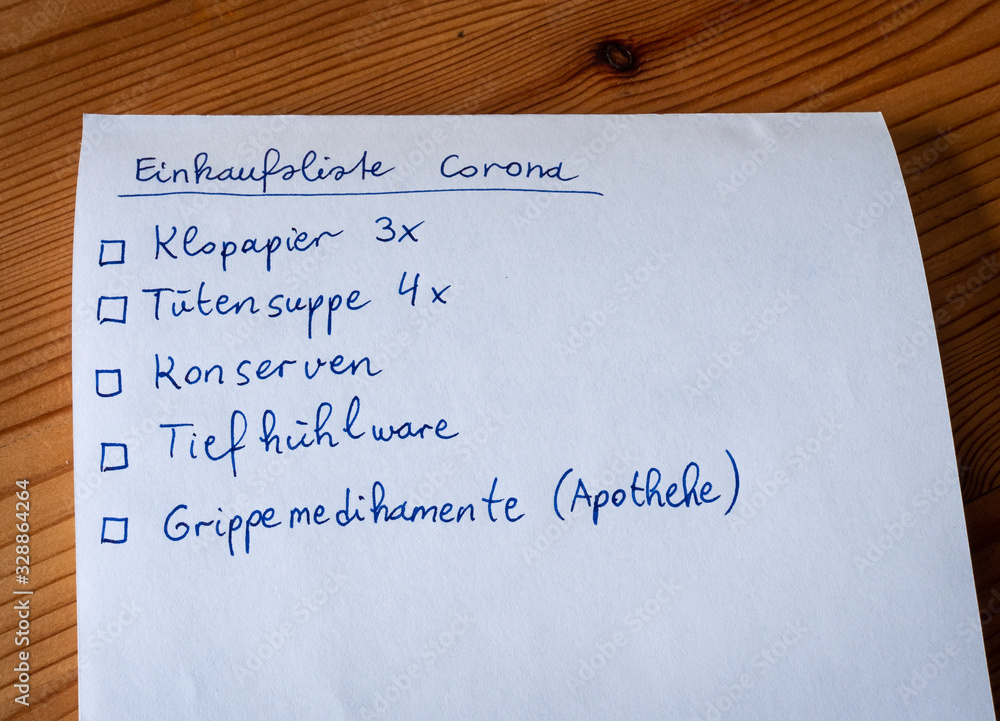 Einkaufsliste Corona
☐ Klopapier 3x
☐ Tütensuppe 4x
☐ Konserven
☐ Tiefkühlware
☐ Grippemedikamente (Apotheke)
Adobe Stock | #328864264